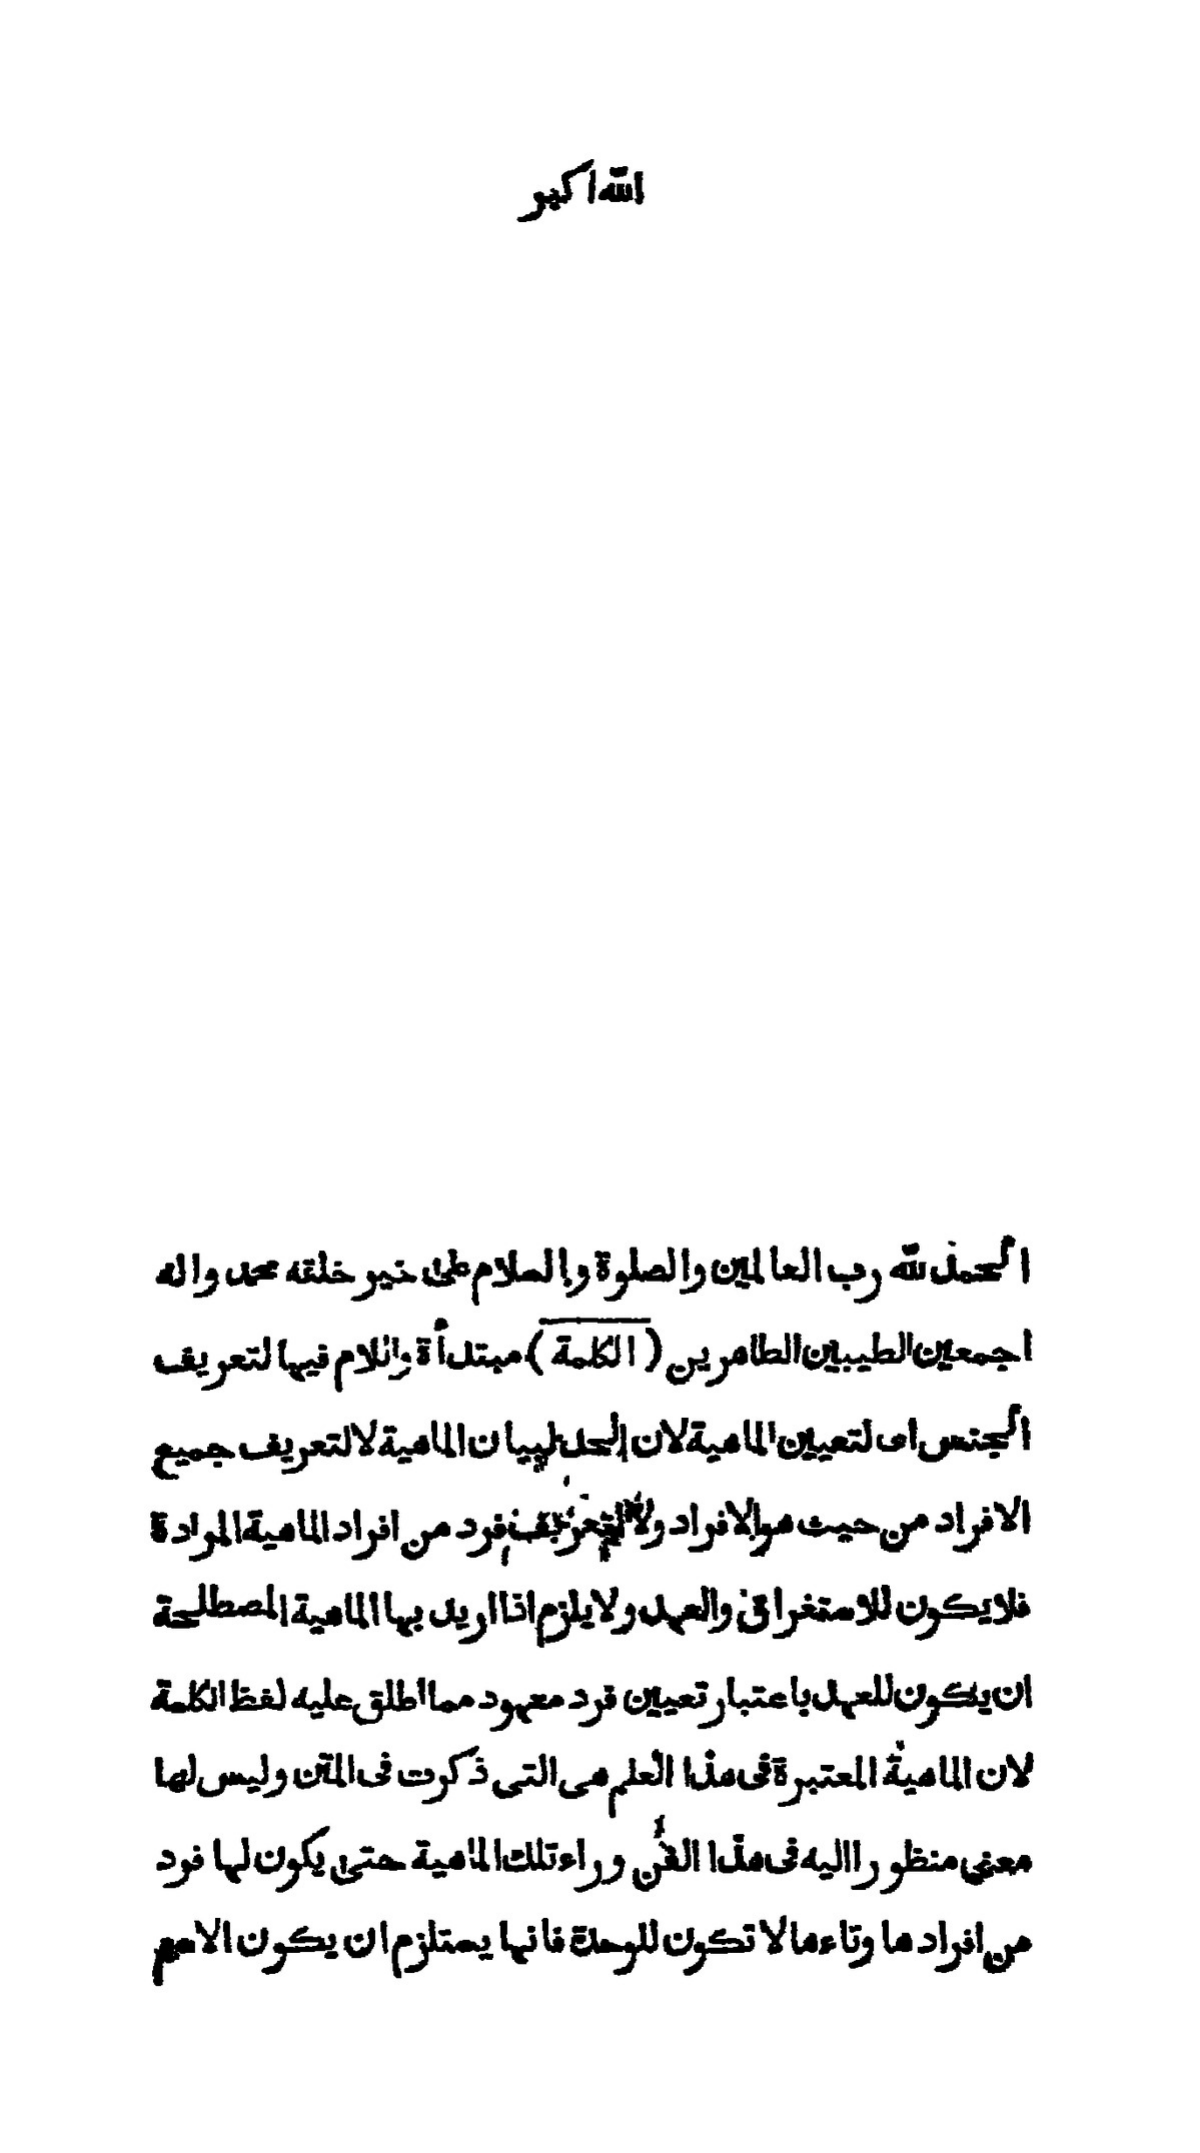 الله اكبر
الحمد لله رب العالمين والصلوة والسلام على خير خلقه محمد واله
اجمعين الطيبين الطاهرين (الكلمة) مبتدأة واللام فيها لتعريف
الجنس اى لتعيين الماهية لان الحد لبيان الماهية لا لتعريف جميع
الافراد من حيث هو الافراد ولا لتعريف فرد من افراد الماهية المرادة
فلا يكون للاستغراق والعهد ولا يلزم اذا اريد بها الماهية المصطلحة
ان يكون للعهد باعتبار تعيين فرد معهود مما اطلق عليه لفظ الكلمة
لان الماهية المعتبرة فى هذا العلم هى التى ذكرت فى المتن وليس لها
معنى منظورا اليه فى هذا الفن وراء تلك الماهية حتى يكون لها فرد
من افرادها وتاءها لا تكون للوحدة فانها يستلزم ان يكون الاسم